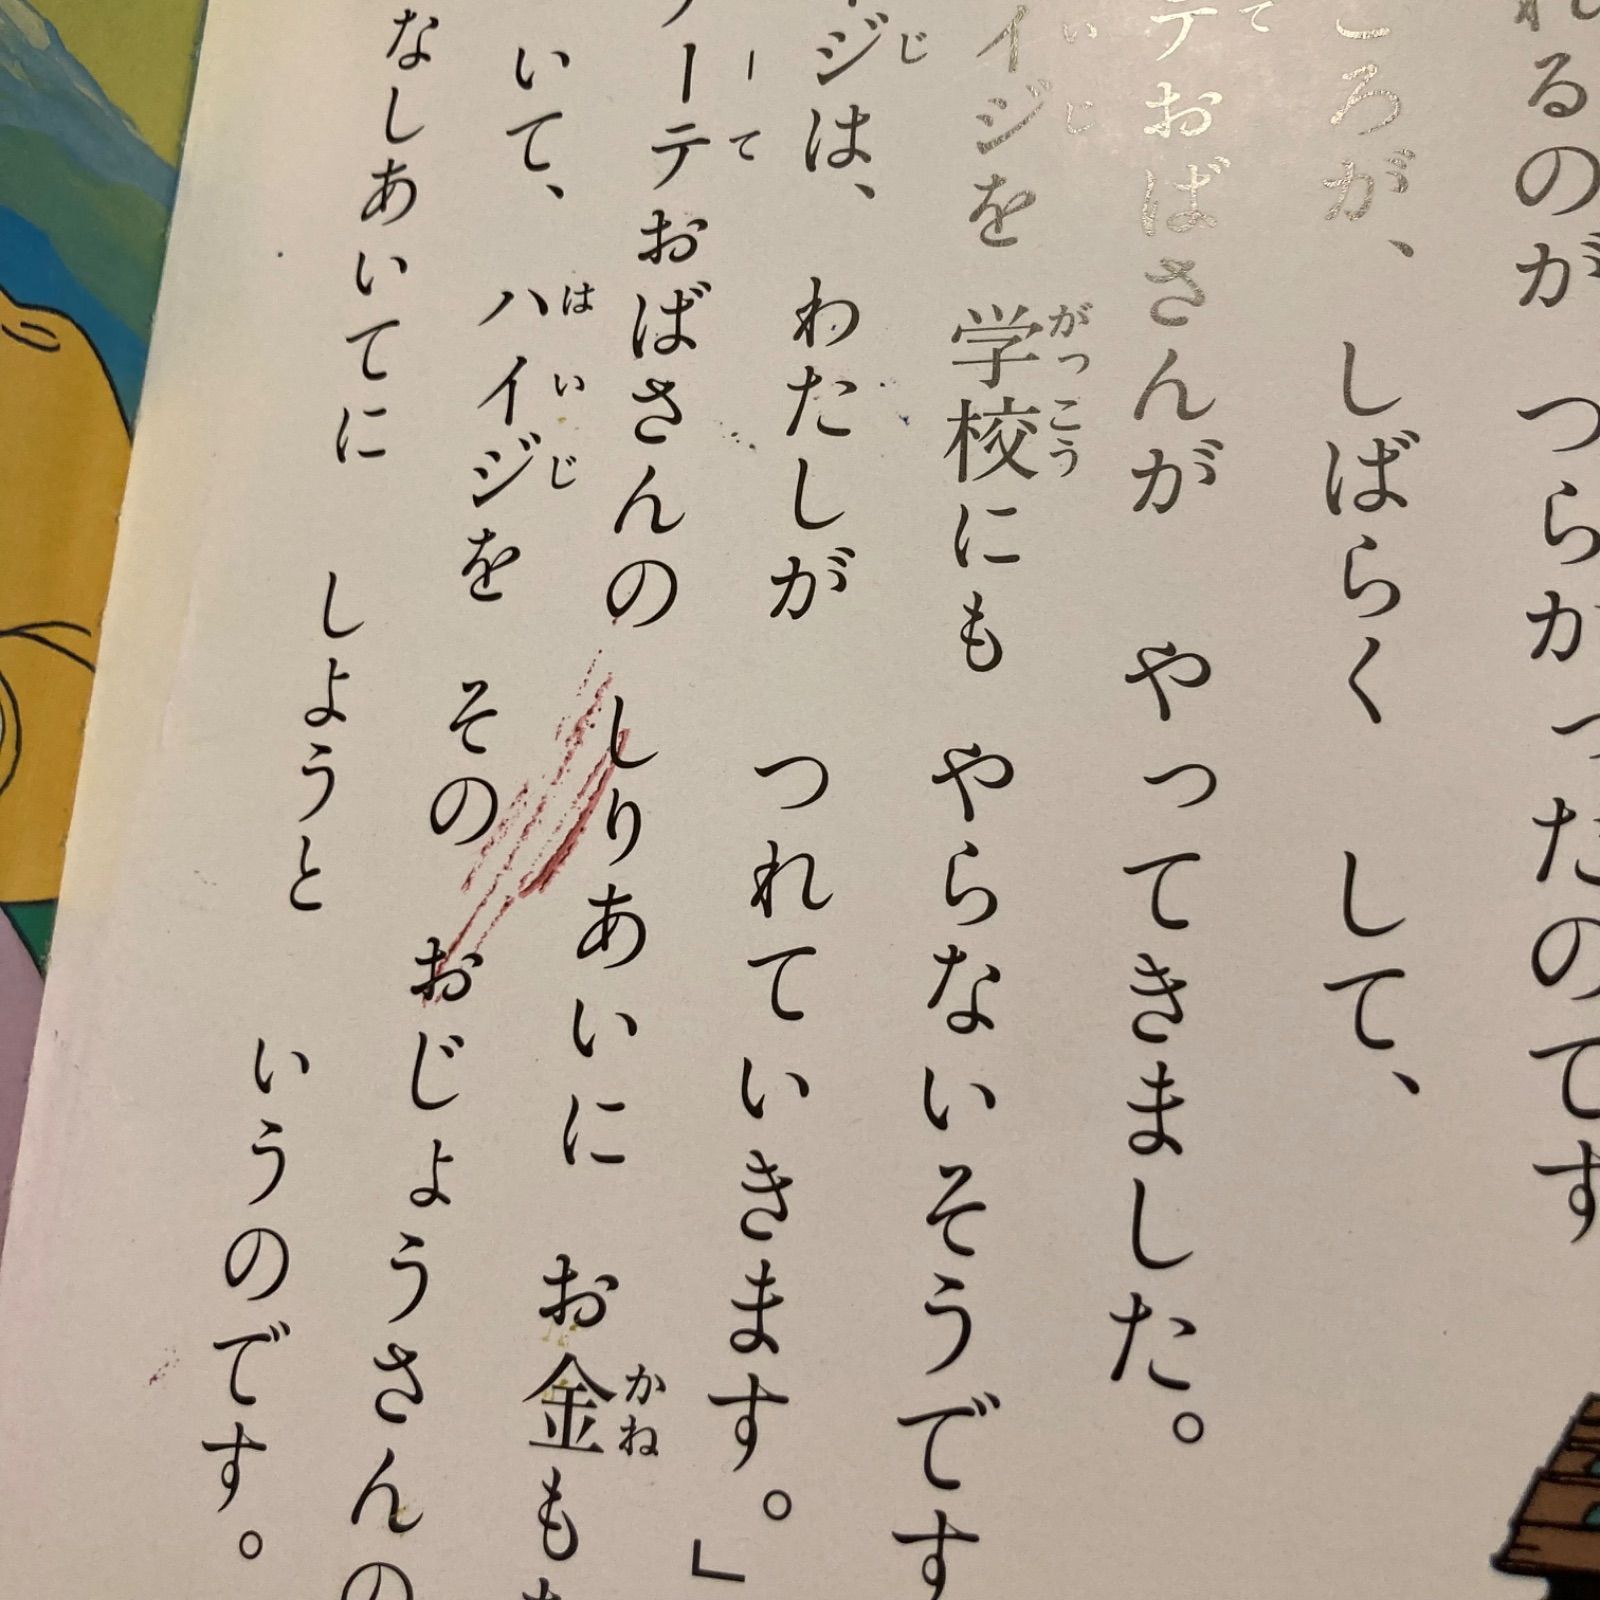 れるのが　つらかったのです
ころが、　しばらく　して、
テおばさんが　やってきました。
イジを　学校にも　やらないそうです
ジは、　わたしが　つれていきます。」
ーテおばさんの　しりあいに　お金も
いて、　ハイジを　その　おじょうさんの
なしあいてに　しようと　いうのです。